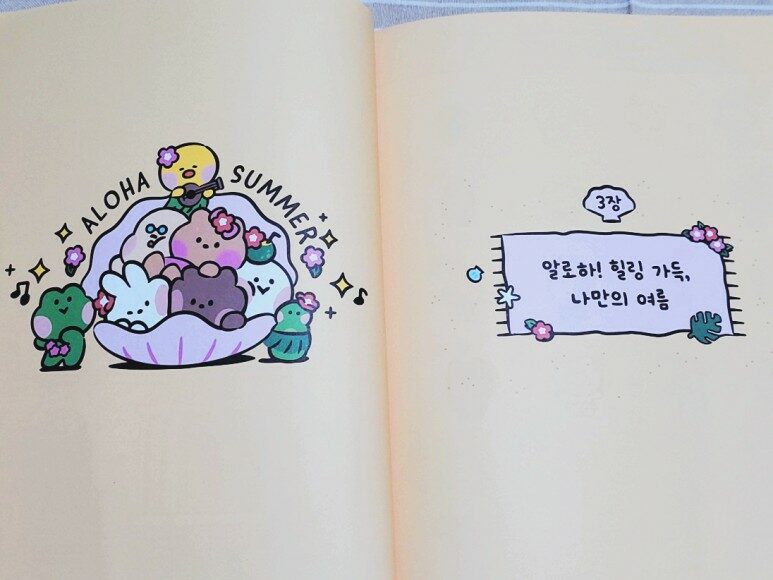 ALOHA SUMMER
3장
알로하! 힐링 가득,
나만의 여름